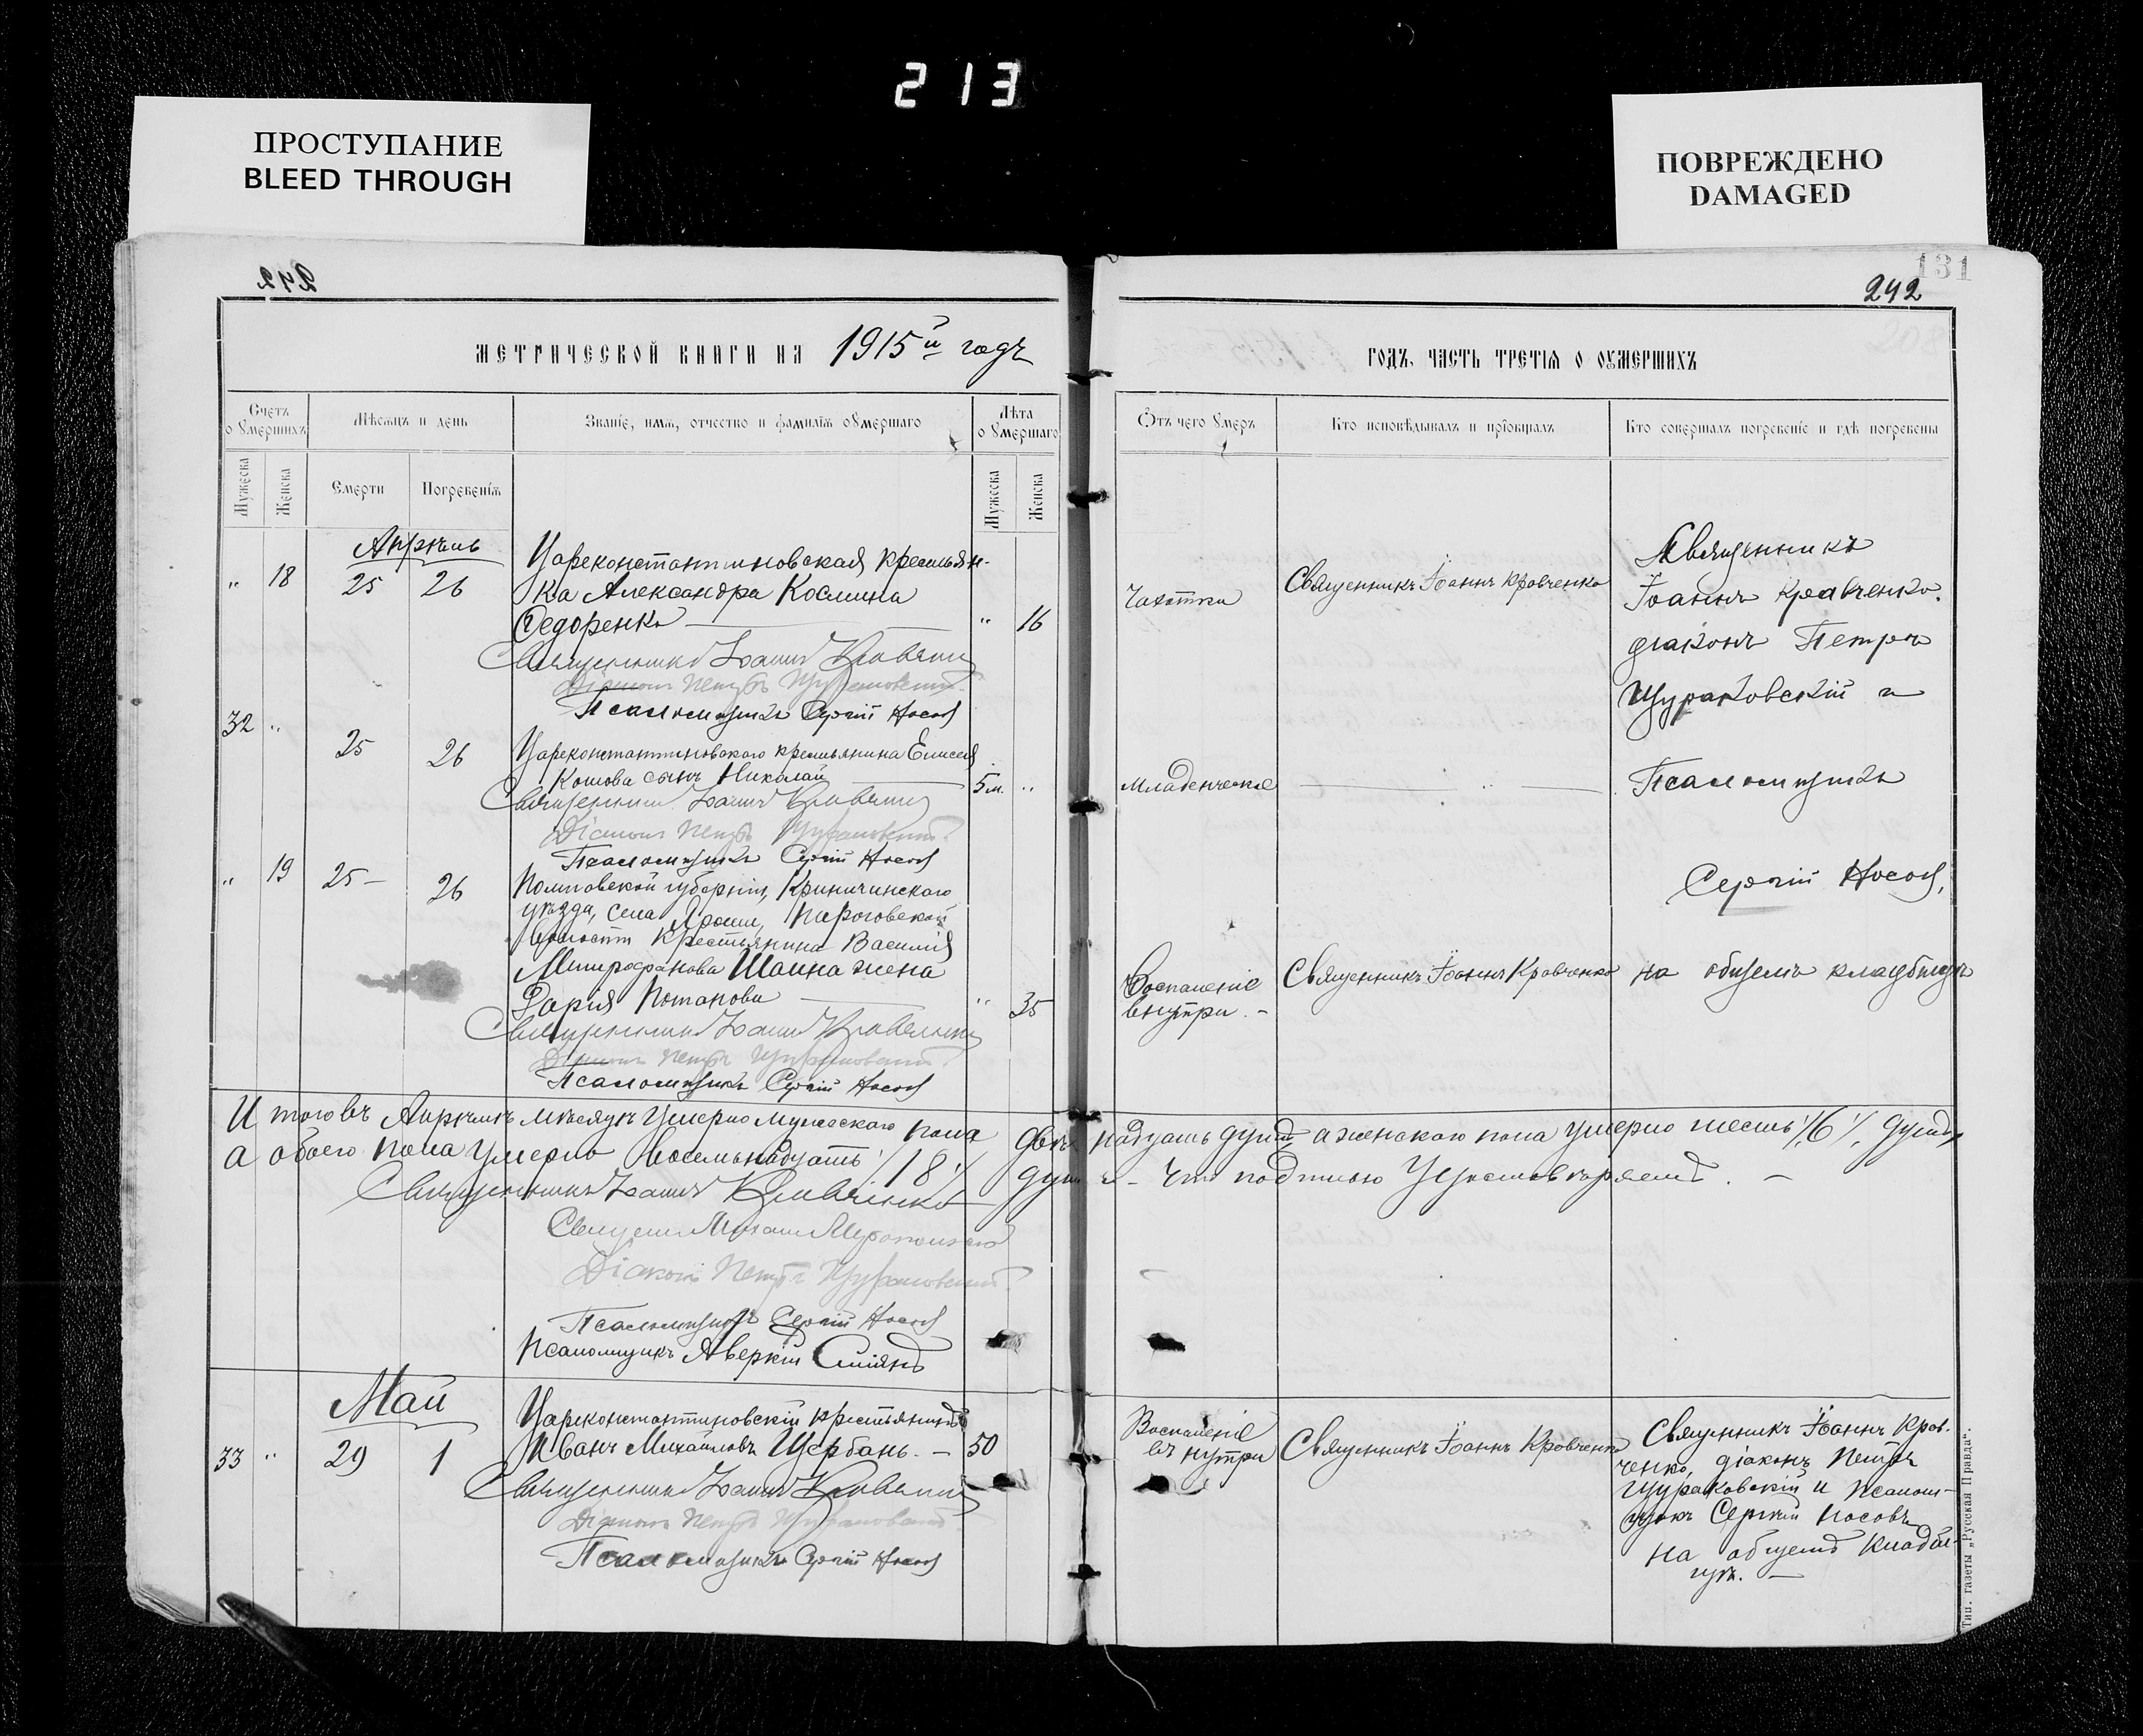 213
ПРОСТУПАНИЕ
BLEED THROUGH
ПОВРЕЖДЕНО
DAMAGED
131
242
МЕТРИЧЕСКОЙ КНИГИ НА 1915й годъ
ГОДЪ, ЧАСТЬ ТРЕТІЯ О ОУМЕРШИХЪ
Счетъ о умершихъ
Мѣсяцъ и день
Званіе, имя, отчество и фамилія оумершаго
Лѣта оумершаго
Отъ чего умеръ
Кто исповѣдывалъ и пріобщалъ
Кто совершалъ погребеніе и гдѣ погребены
Мужеска
Женска
Смерти
Погребенія
Мужеска
Женска
Апрѣль
" 18 25 26
Цареконстантиновская крестьян-
ка Александра Космина
Федоренко — " 16
Чахотки
Священникъ Іоаннъ Кравченко
Священникъ Іоаннъ Кравченко
Діаконъ Петръ Щураковскій
Псаломщикъ Сергій Носовъ
Священникъ
Іоаннъ Кравченко,
діаконъ Петръ
Щураковскій и
Псаломщикъ
Сергій Носовъ,
на общемъ кладбищѣ
32 " 25 26
Цареконстантиновского крестьянина Елисея
Котова сынъ Николай — 5 м. "
Младенческ
Священникъ Іоаннъ Кравченко
Діаконъ Петръ Щураковскій
Псаломщикъ Сергій Носовъ
" 19 25 — 26
Полтавской губерніи,
уѣзда, села
волости крестьянина Василія
Митрофанова жена
Дарія Потапова — " 35
Воспаленіе
внутри. —
Священникъ Іоаннъ Кравченко
Священникъ Іоаннъ Кравченко
Діаконъ Петръ Щураковскій
Псаломщикъ Сергій Носовъ
Итого въ Апрѣлѣ мѣсяцѣ умерло мужескаго пола двѣнадцать душъ, а женскаго пола умерло шесть /6/ душъ
а обоего пола умерло восемьнадцать /18/ душъ — что подписью удостовѣряемъ. —
Священникъ Іоаннъ Кравченко
Діаконъ Петръ Щураковскій
Псаломщикъ Сергій Носовъ
Псаломщикъ Аверкій
Май
33 " 29 1
Цареконстантиновскій крестьянинъ
Иванъ Михайловъ Щербань. — 50
Воспаленіе
въ нутри
Священникъ Іоаннъ Кравченко
Священникъ Іоаннъ Крав-
ченко, діаконъ Петръ
Щураковскій и Псалом-
щикъ Сергѣй Носовъ
на общемъ кладби-
щѣ. —
Священникъ Іоаннъ Кравченко
Діаконъ Петръ Щураковскій
Псаломщикъ Сергій Носовъ
Тип. газеты „Русская Правда".